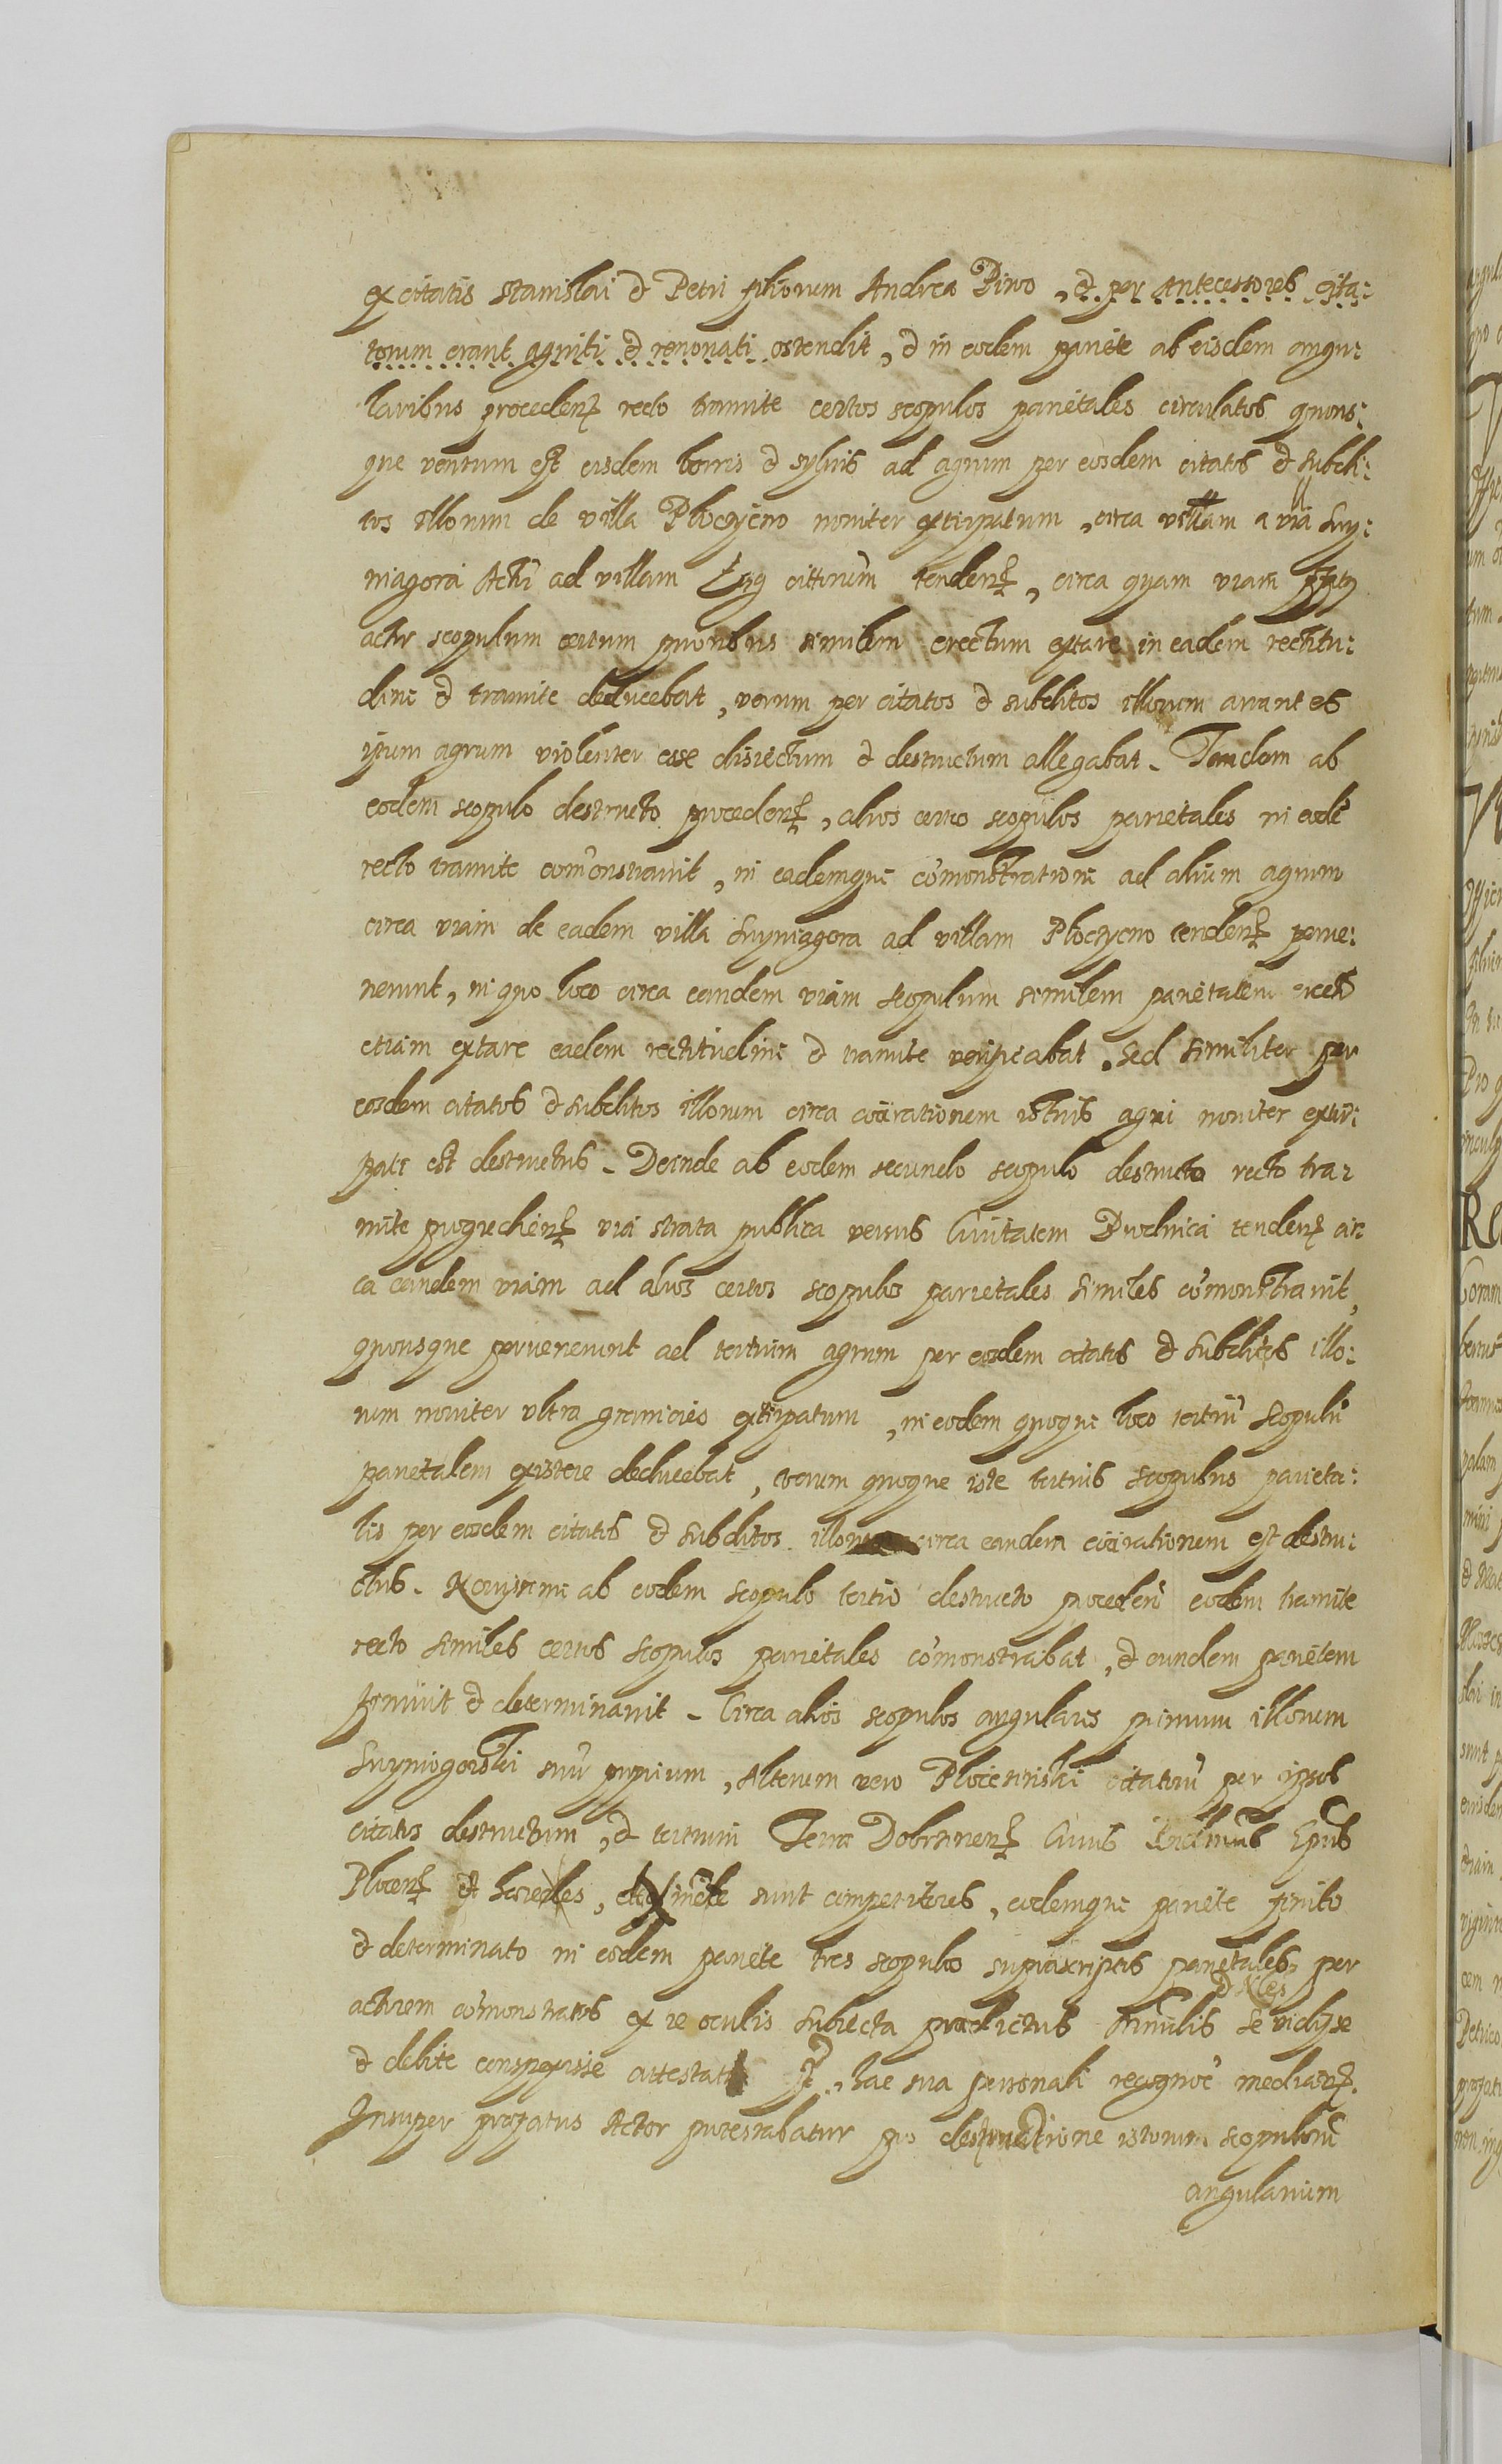 ex citatis Stanislai & Petri filiorum Andrea Pivo, & per antecessores cita:
torum erant agniti & renouati ostendit, & in eodem pariete ab eisdem angu:
laribus procedenꝫ recto tramite certos scopulos parietales circulatos quous:
que ventum est eisdem borris & syluis ad agrum per eosdem citatos & subdi:
tos illorum de villa Ploczyczno nouiter extirpatum, circa villam a via Suy:
niagora Actu ad villam Lug cittorum tendenꝫ, circa quam viam pfatus
actor scopulum certum prioribus similem erectum extare in eadem rectitu:
dine & tramite deducebat, verum per citatos & subditos illorum arantes
ipsum agrum violenter esse disiectum & destructum allegabat. Tandem ab
eodem scopulo destructo procedenꝫ, alios certos scopulos parietales in eodē
recto tramite com̄onstrauit, in eademque cōmonstratione ad alium agrum
circa viam de eadem villa Suyniagora ad villam Ploczyczno tendenꝫ perue:
nerunt, in quo loco circa eandem viam scopulum similem parietalem erectū
etiam extare eadem rectitudine & tramite verificabat. Sed similiter per
eosdem citatos & subditos illorum circa exarationem istius agri nouiter extir:
pati est destructus. Deinde ab eodem secundo scopulo destructo recto tra:
mite progredienꝫ via strata publica versus Ciuitatem tendenꝫ cir
ca eandem viam ad alios certos scopulos parietales similes cōmonstrauit,
quousque peruenerunt ad tertium agrum per eosdem citatos & subditos illo:
rum nouiter ultra granicies extirpatum, in eodem quoque loco tertiū scopulū
parietalem existere deducebat, verum quoque iste tertius scopulus parieta:
lis per eosdem citatos & subditos illorum circa eandem exarationem est destru:
ctus. ab eodem scopulo tertio destructo procedenꝫ eodem tramite
recto similes certos scopulos parietales cōmonstrabat, & eundem parietem
finiuit & determinauit. Circa alios scopulos angulares primum illorum
Suyniogorski suū proprium, Alterum vero Ploczczinski citatorū per ipsos
citatos destructum, & tertium Terra Dobrzinenꝫ Cuius Epūs
Plocenꝫ & haeredes, sunt competitores, eodemque pariete finito
& determinato in eodem pariete tres scopulos suprascriptos parietales per
actorem cōmonstratos ex re oculis subiecta praedictus se vidisse
& debite conspexisse attestatꝫ, hac sua personali recognoē medianꝫ.
Insuper praefatus Actor protestabatur pro destructione istorum scopulorū
angularium